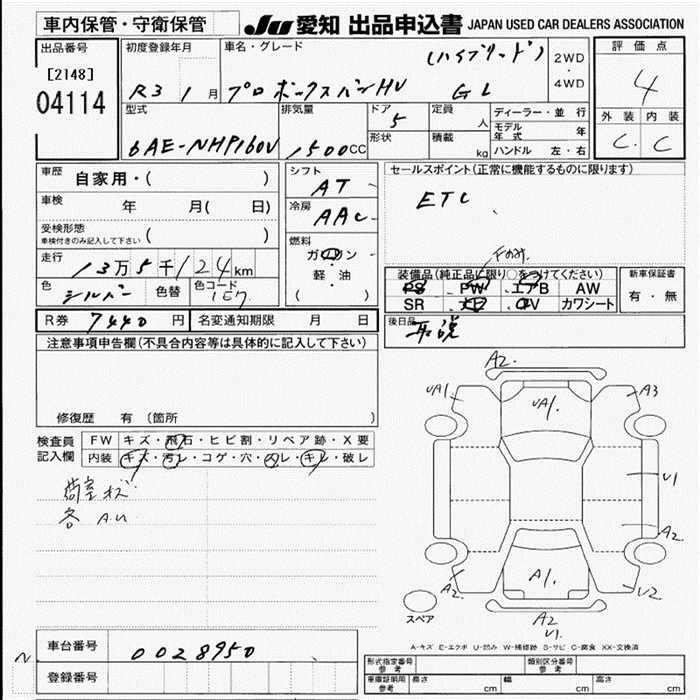 車内保管・守衛保管
JU 愛知 出品申込書 JAPAN USED CAR DEALERS ASSOCIATION
出品番号
[2148]
04114
初度登録年月
R3 1月
車名・グレード
(ハイブリッド)
プロボックスバンHV GL
2WD
・
4WD
評価点
4
外装 内装
C C
型式
6AE-NHP160V
排気量
1500CC
ドア
5
形状
定員
人
積載
kg
ディーラー・並行
モデル年式 年
ハンドル 左・右
車歴
自家用・( )
車検
年 月( 日)
受検形態
車検付きのみ記入して下さい ( )
走行
13万5千124km
色
シルバー
色替
色コード
1E7
シフト
AT
冷房
AAC
燃料
ガソリン
軽・油
( )
セールスポイント(正常に機能するものに限ります)
ETC
Fのみ
装備品(純正品に限り○をつけてください)
PS PW エアB AW
SR ナビ TV カワシート
新車保証書
有・無
R券 7440円
名変通知期限 月 日
後日品
取説
注意事項申告欄(不具合内容等は具体的に記入して下さい)
修復歴 有 (箇所 )
検査員記入欄
FW キズ・飛石・ヒビ割・リペア跡・X要
内装 キズ・汚レ・コゲ・穴・スレ・キレ・破レ
荷室キズ
各A.U
A2
UA1
A3
UA1
U1
A2
A2
A1
U2
スペア
A2
U1
A-キズ E-エクボ U-凹み W-補修跡 S-サビ C-腐食 XX-交換済
車台番号 0028950
登録番号
形式指定番号 参考
類別区分番号 参考
車庫証明用 参考
長さ cm
幅 cm
高さ cm